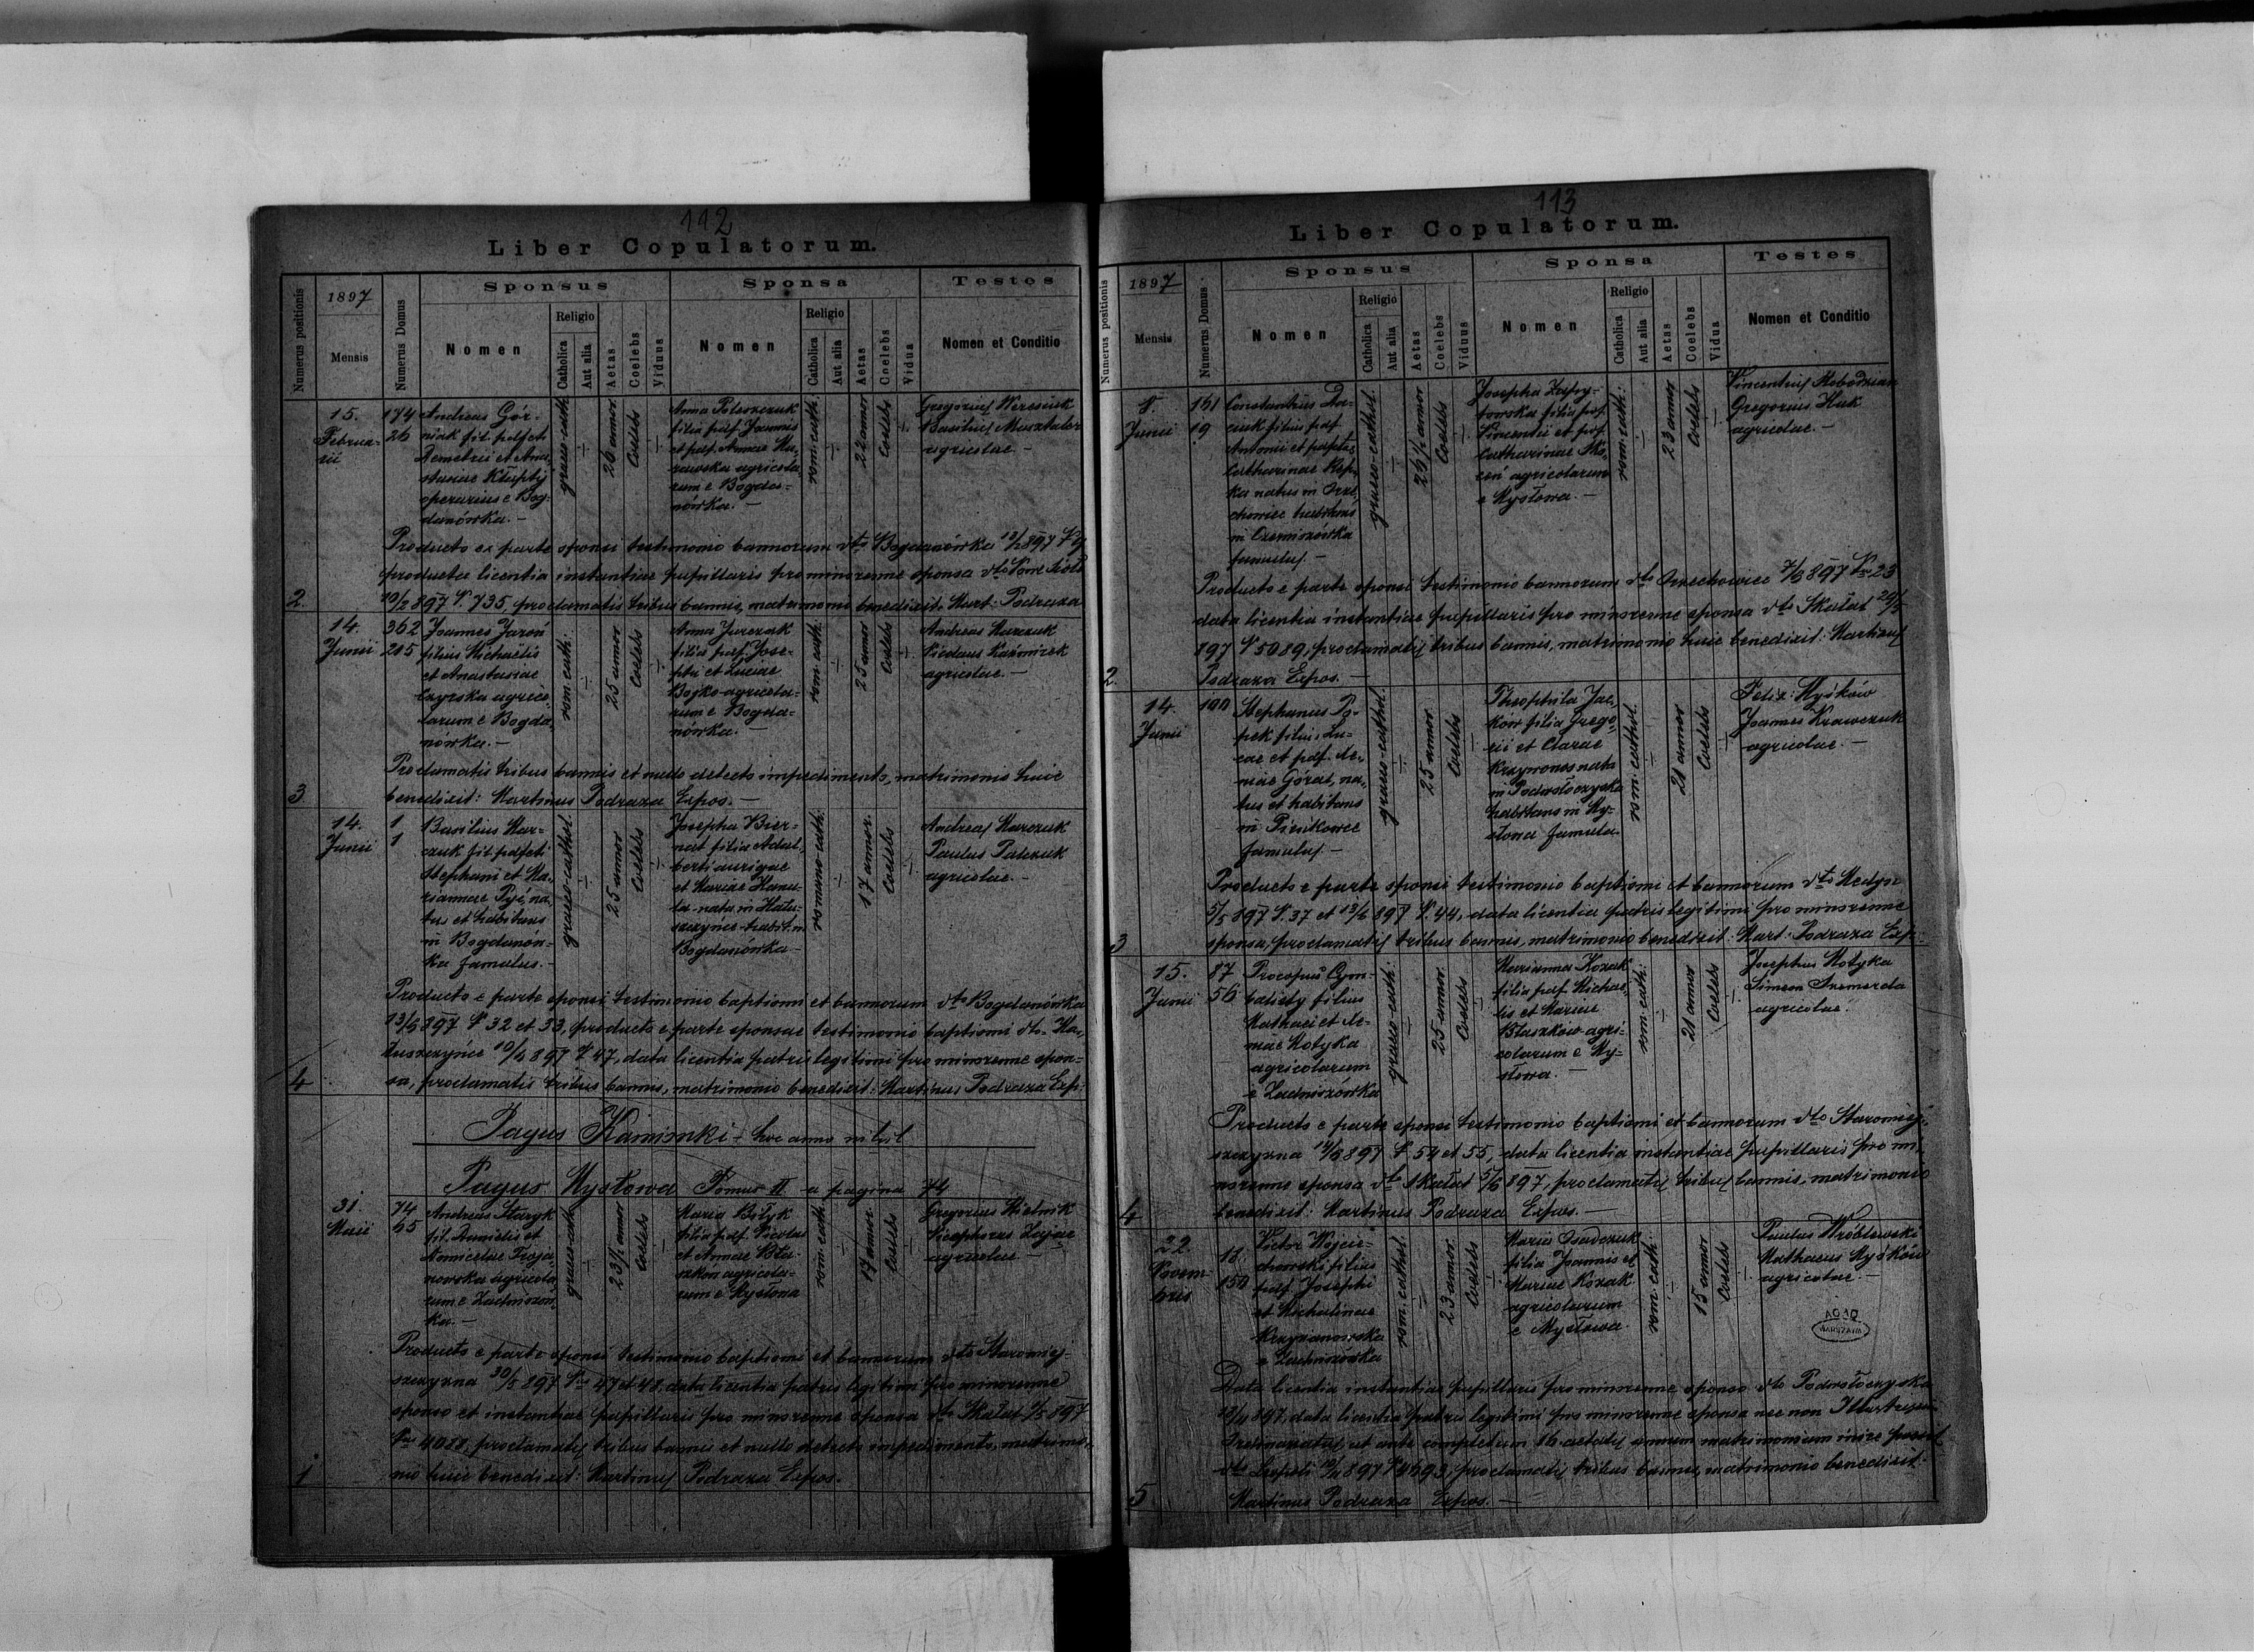 112
Liber Copulatorum.
Numerus positionis
1897
Mensis
Numerus Domus
Sponsus
Nomen
Religio
Catholica
Aut alia
Aetas
Coelebs
Viduus
Sponsa
Nomen
Religio
Catholica
Aut alia
Aetas
Coelebs
Vidua
Testes
Nomen et Conditio
2.
15.
Februa-
rii
174
26
Andreas Gór-
niak fil. pdfcti
Demetrii et Ana-
stasiae
operarius e Bog-
danówka. —
graeco-cath.
26 annor
Coelebs
Anna Poleszczuk
filia pdf. Joannis
et pdf. Annae
agricola-
rum e Bogda-
nówka. —
rom. cath.
22 annor
Coelebs
Gregorius Weresiuk
Basilius
agricolae —
Producto ex parte sponsi testimonio bannorum dto Bogdanówka
producta licentia instantiae pupillaris pro minorenne sponsa dto
10/2 897 N. 735, proclamatis tribus bannis, matrimonio benedixit: Mart. Podraza
3
14.
Junii
362
205
Joannes Jaroń
filius Michaelis
et Anastasiae
agrico-
larum e Bogda-
nówka. —
rom. cath.
25 annor
Coelebs
Anna Jurczak
filia pdf. Jose-
phi et Luciae
Bojko agricola-
rum e Bogda-
nówka. —
rom. cath.
25 annor
Coelebs
Andreas Marczuk
Nicolaus Kaźmirek
agricolae. —
Proclamatis tribus bannis et nullo detecto impedimento, matrimonio huic
benedixit: Martinus Podraza Expos. —
4
14.
Junii
1
1
Basilius Mar-
czuk fil. pdfcti
Stephani et Ma-
riannae Pyć, na-
tus et habitans
in Bogdanów-
ka famulus. —
graeco-cathol.
25 annor
Coelebs
Josepha Bier-
nat filia Adal-
berti aurigae
et Mariae
nata in Kału-
szczyńce habit. in
Bogdanówka —
romano-cath.
17 annor.
Coelebs
Andreas Marczuk
Paulus Palczuk
agricolae. —
Producto e parte sponsi testimonio baptismi et bannorum dto Bogdanówka
13/6 897 N. 32 et 33, producta e parte sponsae testimonio baptismi dto. Ka-
łuszczyńce 10/6 897 N. 47, data licentia patris legitimi pro minorenne spon-
sa, proclamatis tribus bannis, matrimonio benedixit: Martinus Podraza Exp:
Pagus Kamionki - hoc anno nihil
Pagus Mysłowa Tomus II a pagina 74
1
31
Maii
74
65
Andreas Staryk
fil. Danielis et
Troja-
nowska agricola-
rum e Zadniszów-
ka. —
graeco-cath.
23 1/2 annor
Coelebs
Maria Bilyk
filia pdf. Nicolai
et Annae Bła-
szków agricola-
rum e Mysłowa
rom. cath.
17 annor
Coelebs
Gregorius Mielnik
Nicephorus Zając
agricolae —
Producto e parte sponsi testimonio baptismi et bannorum dto Staromiej-
szczyzna 30/5 897 Nr 47 et 48, data licentia patris legitimi pro minorenne
sponso et instantiae pupillaris pro minorenne sponsa dto Skałat 897
Nr 4088, proclamatis tribus bannis et nullo detecto impedimento, matrimo-
nio huic benedixit: Martinus Podraza Expos.
113
Liber Copulatorum.
Numerus positionis
1897
Mensis
Numerus Domus
Sponsus
Nomen
Religio
Catholica
Aut alia
Aetas
Coelebs
Viduus
Sponsa
Nomen
Religio
Catholica
Aut alia
Aetas
Coelebs
Vidua
Testes
Nomen et Conditio
2.
Junii
161
19
Constantius
filius pdf.
Antonii et pdfctae
Catharinae Rep-
ka natus in Orze-
chowiec habitans
in Czerniszówka
famulus. —
graeco-cathol.
26 1/2 annor
Coelebs
Josepha
filia pdf.
Vincentii et pdf.
Catharinae
agricolarum
e Mysłowa. —
rom. cath.
23 annor
Coelebs
Vincentius Słobodzian
Gregorius Huk
agricolae. —
Producto e parte sponsi testimonio bannorum dto Orzechowiec 7/6 897 Nr 23
data licentia instantiae pupillaris pro minorenne sponsa dto Skałat 29/5
897 N. 5089, proclamatis tribus bannis, matrimonio huic benedixit: Martinus
Podraza Expos. —
3
14.
Junii
100
Stephanus Po-
pek filius Lu-
cae et pdf. Xe-
niae Góral, na-
tus et habitans
in Pieńkowce
famulus —
graeco-cathol.
25 annor
Coelebs
Theophila Jac-
ków filia Grego-
rii et Clarae
Krzywonos nata
in Podwołoczyska
habitans in My-
słowa famula.
rom. cathol.
21 annor
Coelebs
Felix Myśków
Joannes Krawczuk
agricolae. —
Producto e parte sponsi testimonio baptismi et bannorum dto Medyn
5/5 897 N. 37 et 13/6 897 N. 44, data licentia patris legitimi pro minorenne
sponsa, proclamatis tribus bannis, matrimonio benedixit: Mart. Podraza Exp.
4
15.
Junii
87
56
Procopius Cym-
balisty filius
Mathaei et Xe-
niae Motyka
agricolarum
e Zadniszówka
graeco-cath.
25 annor
Coelebs
Marianna Kozak
filia pdf. Michae-
lis et Mariae
Błaszków agri-
colarum e My-
słowa. —
rom. cath.
21 annor
Coelebs
Josephus Motyka
Simeon
agricolae.
Producto e parte sponsi testimonio baptismi et bannorum dto Staromiej-
szczyzna 14/6 897 N. 54 et 55, data licentia instantiae pupillaris pro mi-
norenne sponsa dto Skałat 5/6 897, proclamatis tribus bannis, matrimonio
benedixit: Martinus Podraza Expos. —
5
22.
Novem-
bris
18.
150
Victor Wojcie-
chowski filius
pdf. Josephi
et Michalinae
Krzyżanowska
e Zadniszówka
rom. cathol.
23 annor
Coelebs
Maria Osadczuk
filia Joannis et
Mariae Kozak
agricolarum
e Mysłowa.
rom. cath.
15 annor
Coelebs
Paulus Wróblewski
Mathaeus Myśków
agricolae. —
AGAD
WARSZAWA
Data licentia instantiae pupillaris pro minorenne sponso dto Podwołoczyska
13/11 897, data licentia patris legitimi pro minorenne sponsa nec non
Ordinariatus, ut ante completum 16 aetatis annum matrimonium inire possit
dto Leopoli 897 N. 4693, proclamatis tribus bannis, matrimonio benedixit:
Martinus Podraza Expos. —